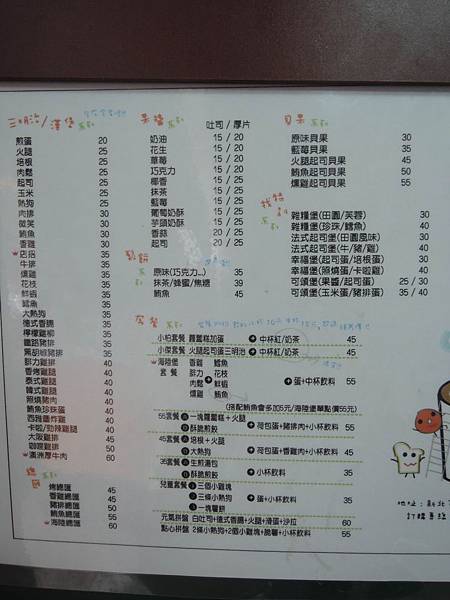 三明治/漢堡 系列
煎蛋 20
火腿 25
培根 25
肉鬆 25
起司 25
玉米 25
熱狗 25
肉排 30
微笑 30
鮪魚 30
香雞 30
店招 35
牛排 35
燻雞 35
花枝 35
鮮蝦 35
鱈魚 35
大熱狗 35
德式香腸 35
檸檬雞柳 35
鐵路豬排 35
黑胡椒豬排 35
勁力雞排 40
香烤雞排 40
泰式雞排 40
韓式雞排 40
照燒豬肉 40
鮪魚珍珠蛋 40
西雅圖炸雞 40
卡啦/勁辣雞排 50
大阪雞排 50
咖哩雞排 50
澳洲厚牛肉 60
總匯 系列
烤總匯 45
香雞總匯 45
豬排總匯 50
鮪魚總匯 55
海陸總匯 60
果醬 系列 吐司/厚片
奶油 15 / 20
花生 15 / 20
草莓 15 / 20
巧克力 15 / 20
椰香 15 / 20
抹茶 15 / 20
藍莓 15 / 20
葡萄奶酥 15 / 20
芋頭奶酥 15 / 20
香蒜 15 / 20
起司 20 / 25
鬆餅 系列
原味(巧克力...) 35
抹茶/蜂蜜/焦糖 39
鮪魚 45
貝果 系列
原味貝果 30
藍莓貝果 35
火腿起司貝果 45
鮪魚起司貝果 50
燻雞起司貝果 55
找特別 系列
雜糧堡(田園/芙蓉) 30
雜糧堡(珍珠/鱈魚) 40
法式起司堡(田園風味) 30
法式起司堡(牛/豬/雞) 40
幸福堡(起司蛋/培根蛋) 30
幸福堡(照燒蛋/卡啦雞) 40
可頌堡(果醬/起司蛋) 25 / 30
可頌堡(玉米蛋/豬排蛋) 35 / 40
套餐 系列
小柏套餐 蘿蔔糕加蛋 中杯紅/奶茶 45
小傑套餐 火腿起司蛋三明治 中杯紅/奶茶 45
海陸堡 香雞 鱈魚
套餐 勁力 花枝
肉鬆 鮮蝦 蛋+中杯飲料 55
燻雞 鮪魚
(搭配鮪魚會多加5元/海陸堡單點價55元)
55套餐 一塊蘿蔔糕+火腿
酥脆煎餃 荷包蛋+豬排肉+小杯飲料 55
45套餐 培根+火腿
大熱狗 荷包蛋+肉鬆+小杯飲料 45
35套餐 生煎湯包
酥脆煎餃 小杯飲料 35
兒童套餐 三個小雞塊
三條小熱狗 蛋+小杯飲料 35
一塊薯餅
元氣拼盤 白吐司+德式香腸+火腿+滑蛋+沙拉 60
點心拼盤 2條小熱狗+2個小雞塊+脆薯+小杯飲料 55
地址:新北
訂購專線